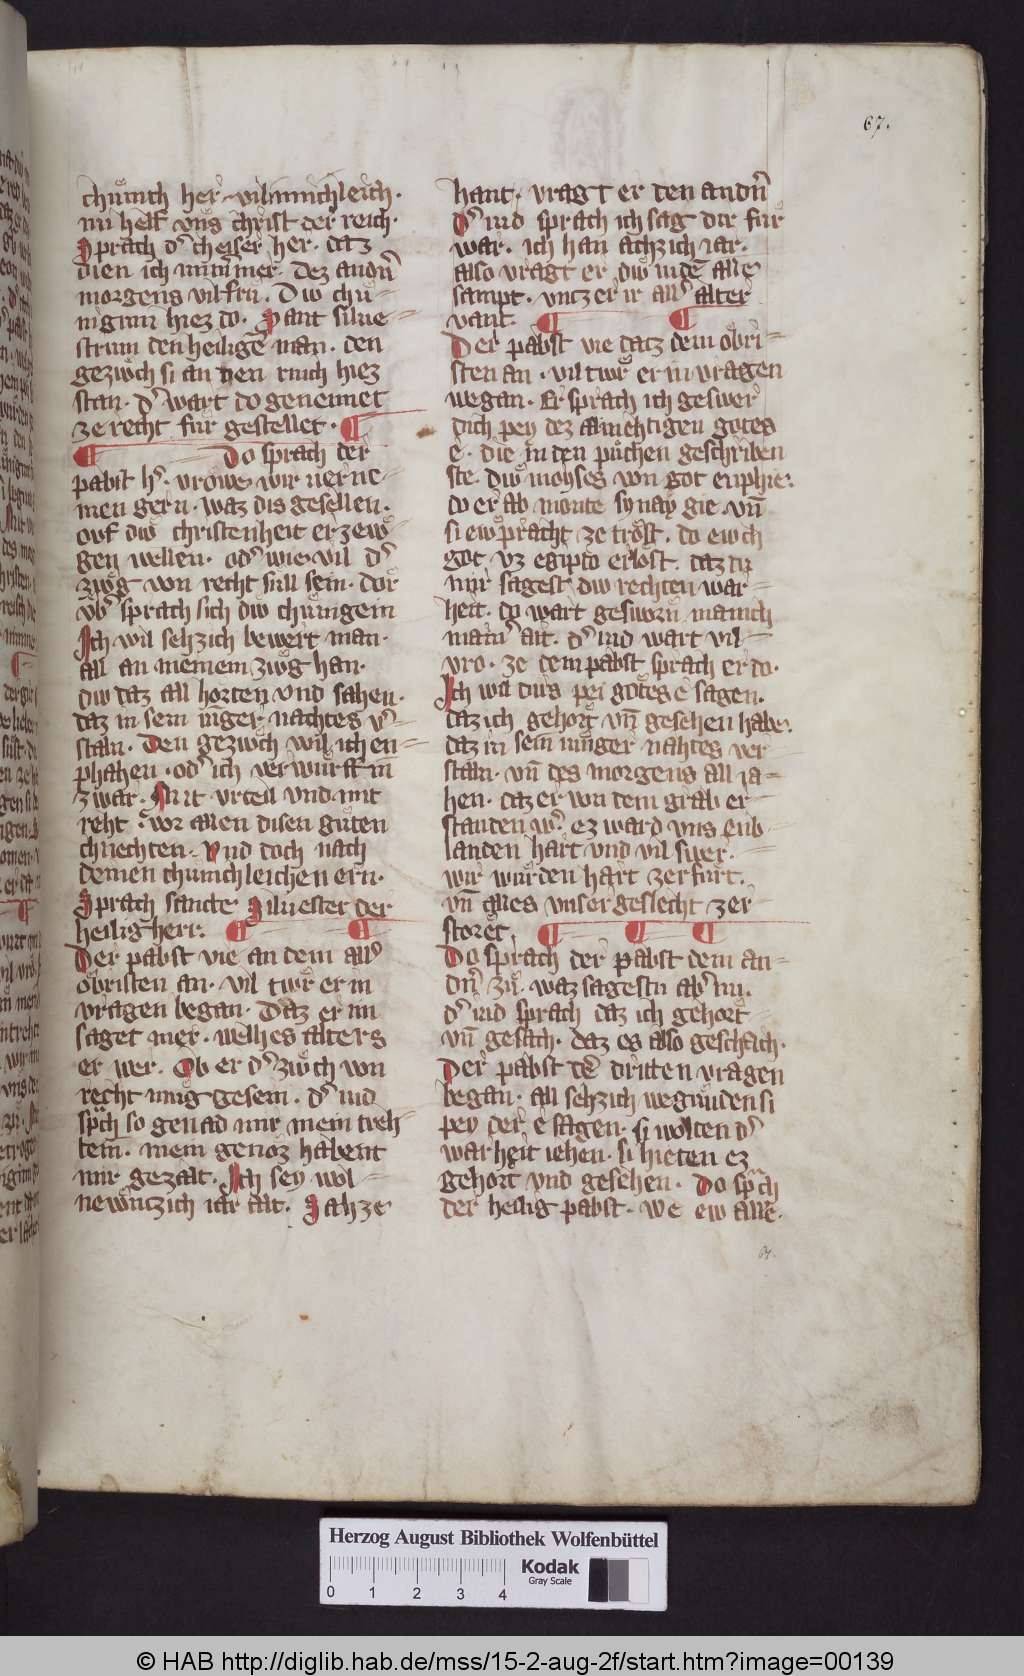 67.
chuͤnch her. vil minchleich.
nu helf vns christ der reich.
Sprach dˢ cheiser her. daz
dien ich immer. dez andn̄
morgens vil fru. Diw chuͤ-
niginn hiez do. Sant silue-
strum den heiligē man. den
gezwͦch si an nen rinch hiez
stan. dˢ wart do genennet
ze recht fuͤr gestellet.
Do sprach der
pabst hˢ. vrowe wir verne-
men gern. waz dis gesellen.
ouf diw christenheit erzew-
gen wellen. odˢ wie vil dˢ
zwͦg von recht sull sein. Dar
vbˢ sprach sich diw chuͤnigein
Ich wil sehzich bewert man.
all an meinem zwͦg han.
diw daz all horten vnd sahen.
daz in sein iūger nachtes vˢ-
staln. Den gezwͦch wil ich en-
phahen. odˢ ich verwuͤrff in
zwar. Mit vrteil vnd mit
reht. vor allen disen guͦten
chnechten. Vnd doch nach
deinen chunichleichen ern.
Sprach sancte Siluester der
heilig herr.
Der pabst vie an dem allˢ
oͤbristen an. vil twͤr er in
vragen began. Daz er im
saget mer. welhes alters
er wer. Ob er dˢ zwͦch von
recht mug gesein. dˢ iud
sp̄ch so genad mir mein trech-
tein. mein genoz habent
mir gezalt. Ich sey wol
newnzich iar alt. Sa ze
hant. vragt er den andn̄
Dˢ iud sprach ich sag dir fuͤr
war. ich han achzich iar.
also vragt er diw iudē alle
sampt. vncz er ir allˢ alter
vant.
Der pabst vie datz dem oͤbri-
sten an. vil twͤr er in vragen
wegan. Er sprach ich geswer
dich pey dez almechtigen gotes
e. die in den puͦchen geschriben
ste. diw moyses von got enphie.
do er ab monte synay gie. vn̄
si ew pracht ze trost. do ewch
got vz egipto erlost. daz du
mir sagest diw rechten war-
heit. do wart gesworn manich
mainˢ ait. dˢ iud wart vil
vro. ze dem pabst sprach er do.
Ich wil dirs pei gotes e sagen.
daz ich gehort vn̄ gesehen habe.
daz in sein iunger nahtes ver
staln. vn̄ des morgens all ia-
hen. daz er von dem grab er
standen wˢ. ez ward vns enb-
landen hart vnd vil swer.
wir wuͤrden hart zerfurt.
vn̄ alles vnser geslecht zer
storet.
Do sprach der pabst dem an-
dn̄ zuͦ. waz sagestu abˢ nu.
dˢ iud sprach daz ich gehort
vn̄ gesach. daz es also geschach.
Der pabst dē dritten vragen
began. all sehzich wegunden si
pey der e sagen. si wolten dˢ
warheit iehen. si hieten ez
gehort vnd gesehen. Do sp̄ch
der heilig pabst. we ew alle.
67.
Herzog August Bibliothek Wolfenbüttel
0 1 2 3 4
Kodak
Gray Scale
© HAB http://diglib.hab.de/mss/15-2-aug-2f/start.htm?image=00139